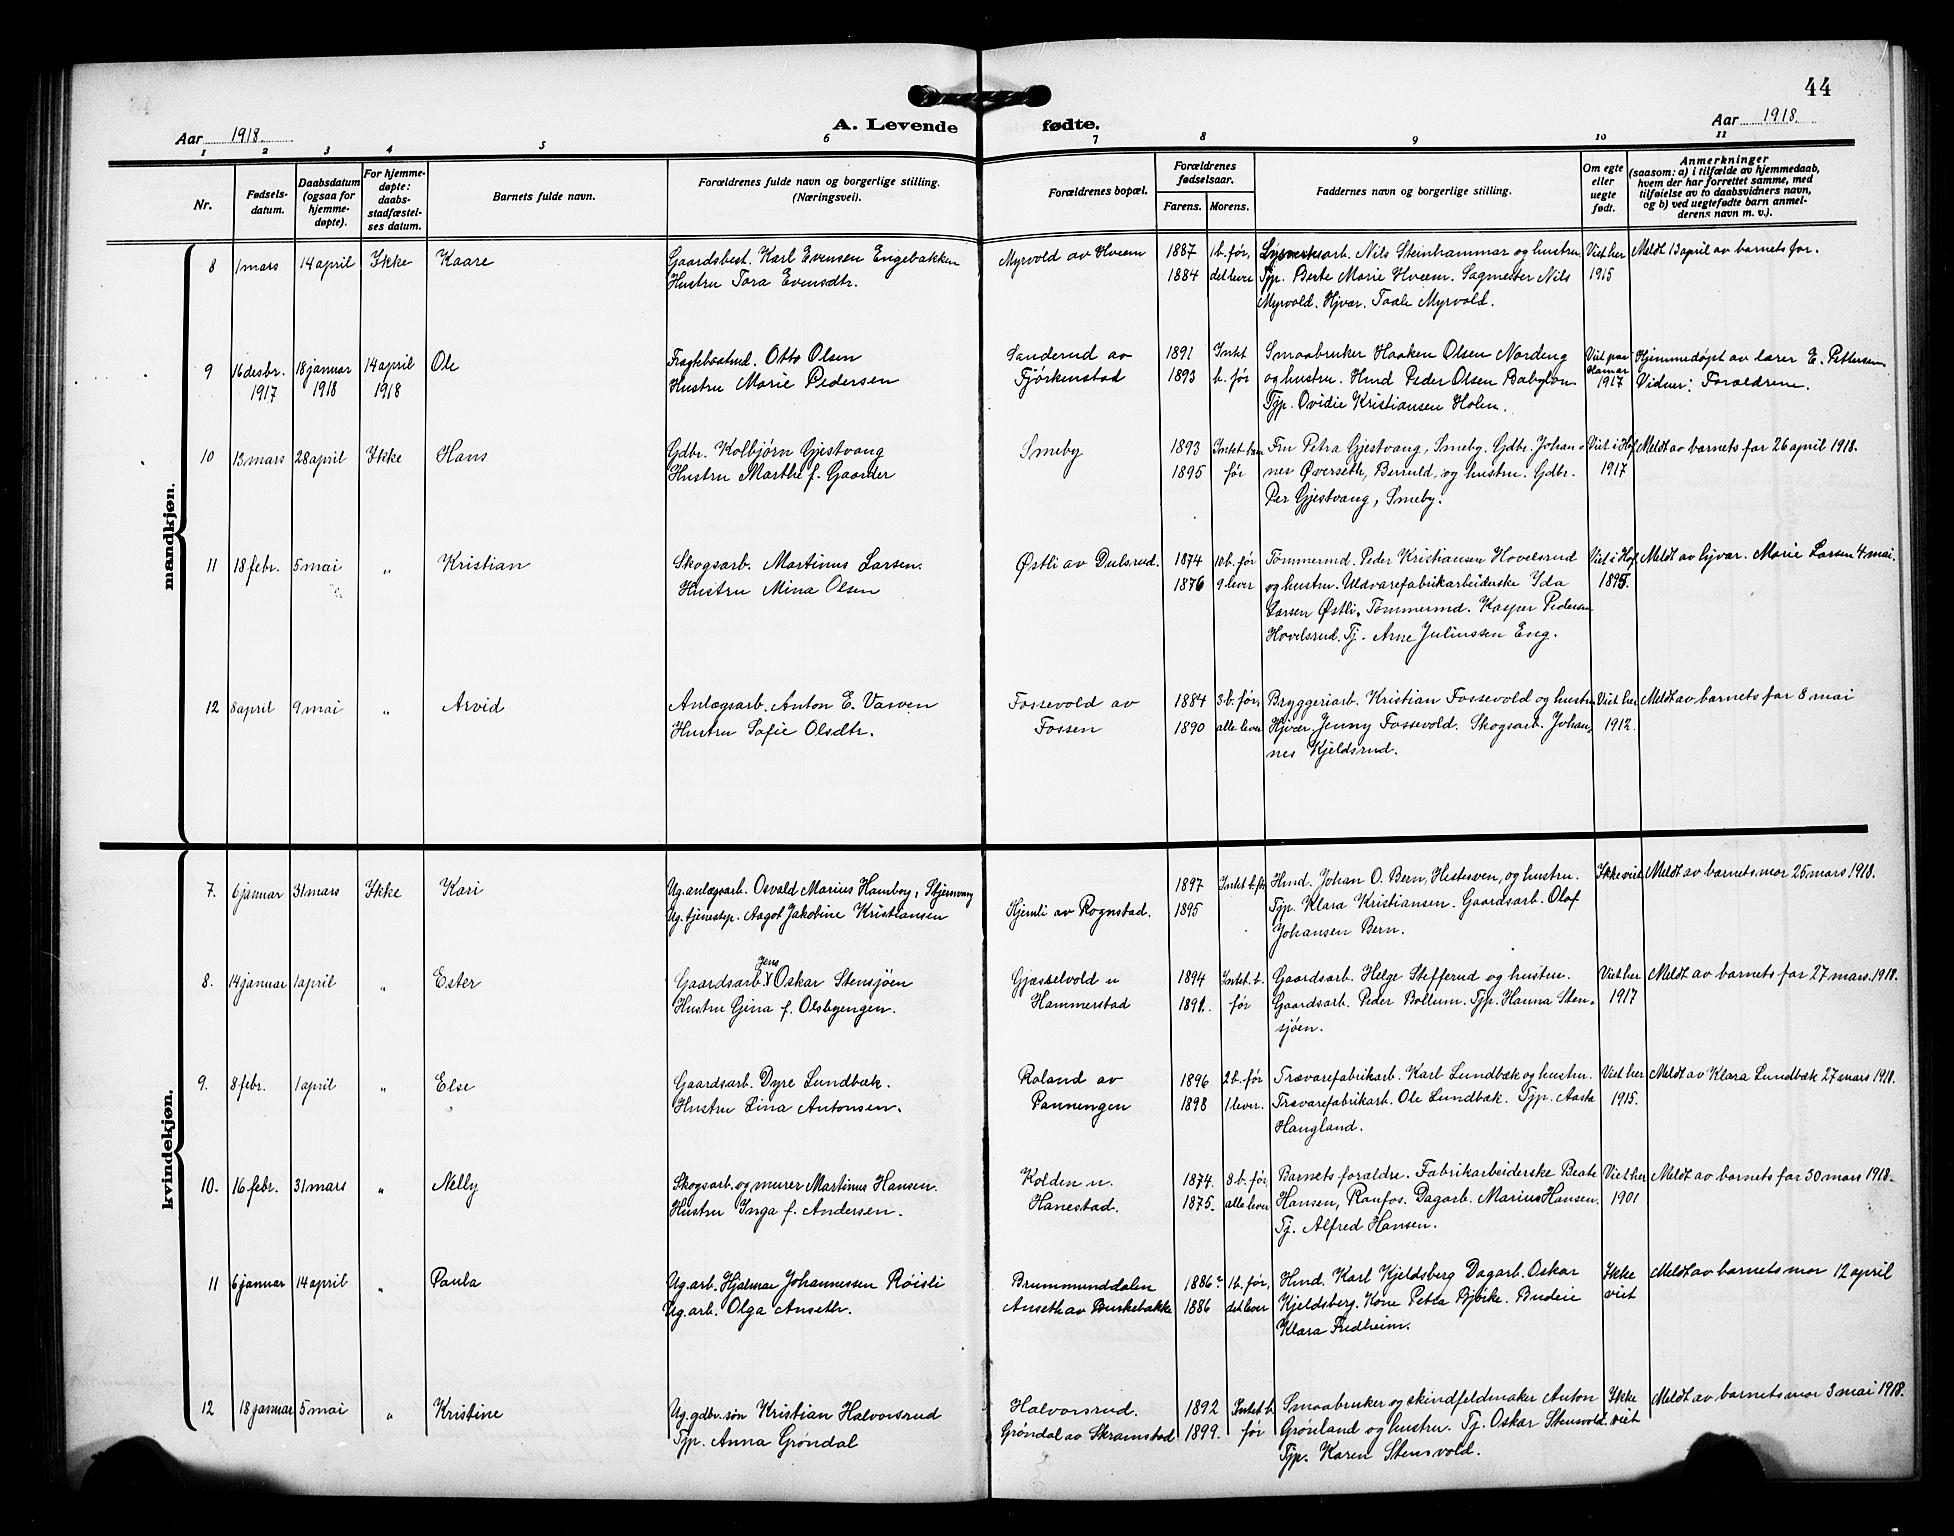 44
Aar 1918. A. Levende fødte. Aar 1918.
1 2 3 4 5 6 7 8 9 10 11
Nr.
Fødsels-
datum.
Daabsdatum
(ogsaa for
hjemme-
døpte).
For hjemme-
døpte:
daabs-
stadfæstel-
ses datum.
Barnets fulde navn.
Forældrenes fulde navn og borgerlige stilling.
(Næringsvei).
Forældrenes bopæl.
Forældrenes
fødselsaar.
Farens. Morens.
Faddernes navn og borgerlige stilling.
Om egte
eller
uegte
født.
Anmerkninger
(saasom: a) i tilfælde av hjemmedaab,
hvem der har forrettet samme, med
tilføielse av to daabsvidners navn,
og b) ved uegtefødte barn anmel-
derens navn m. v.).
mandkjøn.
8 1 mars 14 april Ikke Kaare Gaardsbest. Karl Evensen Engebakken Myrvold av Hveem 1887 1 b. før, Lysverksarb. Nils Steinhammar og hustru. Viet her Meldt 13 april av barnets far.
Hustru Tora Evensdtr. 1884 det lever Tjp. Berte Marie Hveem. Sagmester Nils 1915
Myrvold. Hjvar. Taale Myrvold.
9 16 desbr. 18 januar 14 april Ole Fragtebaatmd. Otto Olsen Sanderud av 1891 Intet Smaabruker Haaken Olsen Nordeng Viet paa Hjemmedøpt av lærer E. Pettersen
1917 1918 1918 Hustru Marie Pedersen Fjørkenstad 1893 b. før og hustru. Hmd Peder Olsen Babylon. Hamar 1917 Vidner: Forældrene.
Tjp. Ovidie Kristiansen Holen.
10 13 mars 28 april Ikke Hans Gdbr. Kolbjørn Gjestvang Smeby 1893 Intet barn Fru Petra Gjestvang, Smeby. Gdbr. Johan- Viet i Hof Meldt av barnets far 26 april 1918.
Hustru Marthe f. Gaarder 1895 før nes Øverseth, Berruld, og hustru. Gdbr. 1917
Per Gjestvang, Smeby.
11 18 febr. 5 mai " Kristian Skogsarb. Martinus Larsen. Østli av Dulsrud. 1874 10 b. før Tømmermd. Peder Kristiansen Hovelsrud Viet i Hof Meldt av hjvar. Marie Larsen 4 mai.
Hustru Mina Olsen 1876 9 lever og hustru. Uldvarefabrikarbeiderske Ida 1895.
Larsen Østli. Tømmermd. Kasper Pedersen
Hovelsrud. Tj. Arne Juliussen Eng.
12 8 april 9 mai " Arvid Anlægsarb. Anton E. Vasven Fossevold av 1884 3 b. før, Bryggeriarb. Kristian Fossevold og hustru Viet her Meldt av barnets far 8 mai
Hustru Sofie Olsdtr. Fossen 1890 alle lever Hjvar. Jenny Fossevold. Skogsarb. Johan- 1912.
nes Kjeldsrud.
kvindekjøn.
7. 6 januar 31 mars Ikke Kari Ug. anlægsarb. Osvald Marius Hamborg, Stjernvang 1897 Intet b. før Hmd. Johan O. Bern, Hestesven, og hustru. Ikke viet Meldt av barnets mor 25 mars 1918.
Ug. tjenestep. Aagot Jakobine Kristiansen Hjemli av Rognstad. 1895 Tjp. Klara Kristiansen. Gaardsarb. Olaf
Johansen Bern.
8. 14 januar 1 april " Ester Gaardsarb. Jens Oskar Stensjøen Gjæsselvold u 1894 Intet b. Gaardsarb. Helge Stefferud og hustru. Viet her Meldt av barnets far 27 mars. 1918.
Hustru Gina f. Olsbyengen. Hammerstad 1891. før Gaardsarb. Peder Bollum. Tjp. Hanna Sten- 1917
sjøen.
9. 8 febr. 1 april " Else Gaardsarb. Dyre Lundbæk. Roland av 1896 2 b. før Trævarefabrikarb. Karl Lundbæk og hustru. Viet her Meldt av Klara Lundbæk 27 mars 1918.
Hustru Lina Antonsen. Pannengen 1898 1 lever. Trævarefabrikarb. Ole Lundbæk. Tjp. Aasta 1915.
Haugland.
10. 16 febr. 31 mars " Nelly Skogsarb. og murer Martinus Hansen. Kolden u. 1874. 8 b. før, Barnets forældre. Fabrikarbeiderske Beate Viet her Meldt av barnets far 30 mars 1918.
Hustru Inga f. Andersen. Hanestad. 1875. alle lever Hansen, Raufos. Dagarb. Marius Hansen. 1901
Tj. Alfred Hansen.
11 6 januar 14 april " Paula Ug. arb. Hjalmar Johannessen Røisli Brummunddalen 1886? 1 b. før, Hmd. Karl Kjeldsberg Dagarb. Oskar Ikke Meldt av barnets mor 12 april
Ug. arb. Olga Anseth. Anseth av Birkebakke 1886 det lever Kjeldsberg. Kone Petra Bjørke. Budeie viet
Klara Fredheim.
12 18 januar 5 mai " Kristine Ug. gdbr. søn Kristian Halvorsrud Halvorsrud. 1892 Intet b Smaabruker og skindfeldmaker Anton Ikke Meldt av barnets mor 3 mai 1918.
Tjp. Anna Grøndal Grøndal av Skramstad 1899. før Grønland og hustru. Tj. Oskar Stensvold. viet
Tjp. Karen Stensvold.